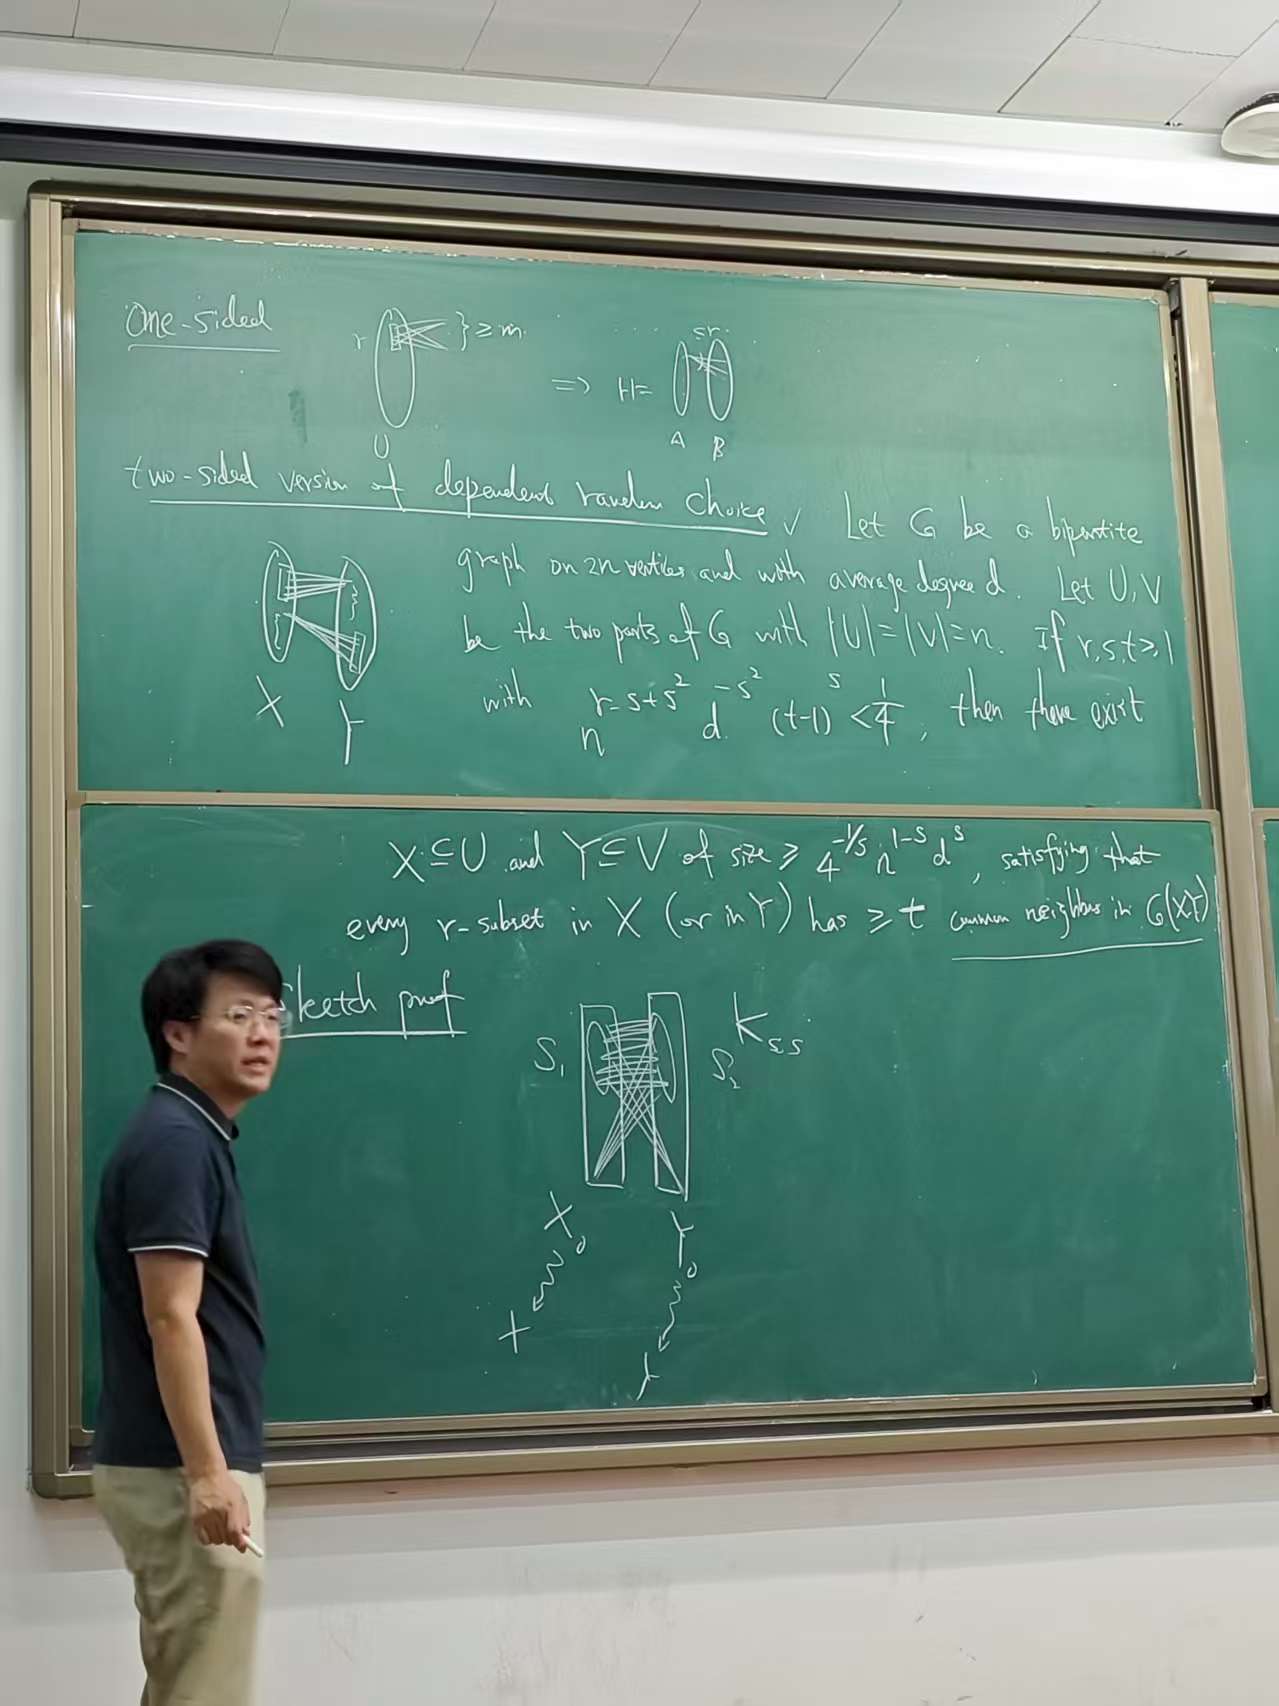 One-sided
r } ≥ m. ≤r
=> H=
U A B
two-sided version of dependent random choice, Let G be a bipartite
graph on 2n vertices and with average degree d. Let U, V
be the two parts of G with |U|=|V|=n. If r,s,t≥1
with n^{r-s+s^2} d^{-s^2} (t-1)^s < 1/4, then there exist
X Y
X⊆U and Y⊆V of size ≥ 4^{-1/s} n^{1-s} d^s, satisfying that
every r-subset in X (or in Y) has ≥ t common neighbors in G(X,Y)
Sketch proof
S_1 S_2 K_{s,s}
X_0 Y_0
X Y